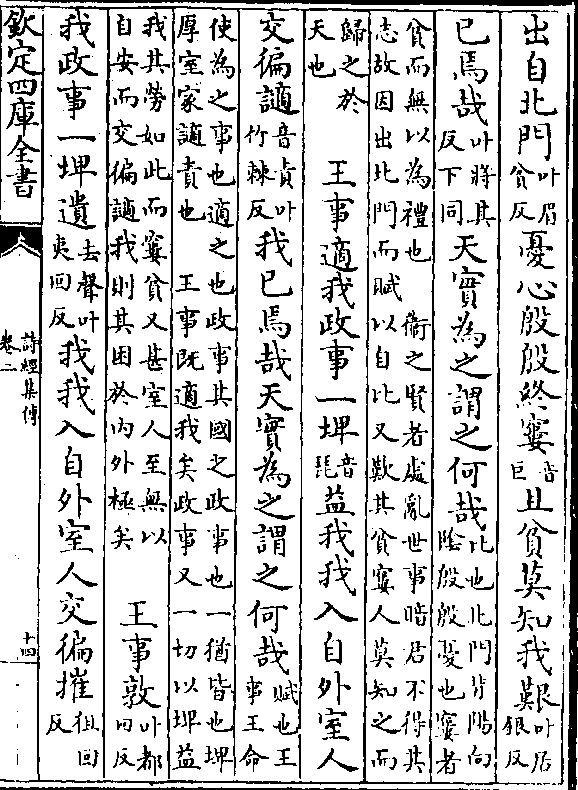 出自北門叶眉貧反憂心殷殷終窶音巨且貧莫知我艱叶居銀反
已焉哉叶將其反下同天實為之謂之何哉比也北門背陽向陰殷殷憂也窶者
貧而無以為禮也　衛之賢者處亂世事暗君不得其
志故因出北門而賦以自比又歎其貧窶人莫知之而
歸之於天也　王事適我政事一埤音琵益我我入自外室人
交徧讁音責叶竹棘反我已焉哉天實為之謂之何哉賦也王事王命
使為之事也適之也政事其國之政事也一猶皆也埤
厚室家讁責也　王事既適我矣政事又一切以埤益
我其勞如此而窶貧又甚室人至無以
自安而交徧讁我則其困於内外極矣　王事敦叶都回反
我政事一埤遺去聲叶夷回反我我入自外室人交徧摧徂回反
欽定四庫全書
詩經集傳
卷二
十四